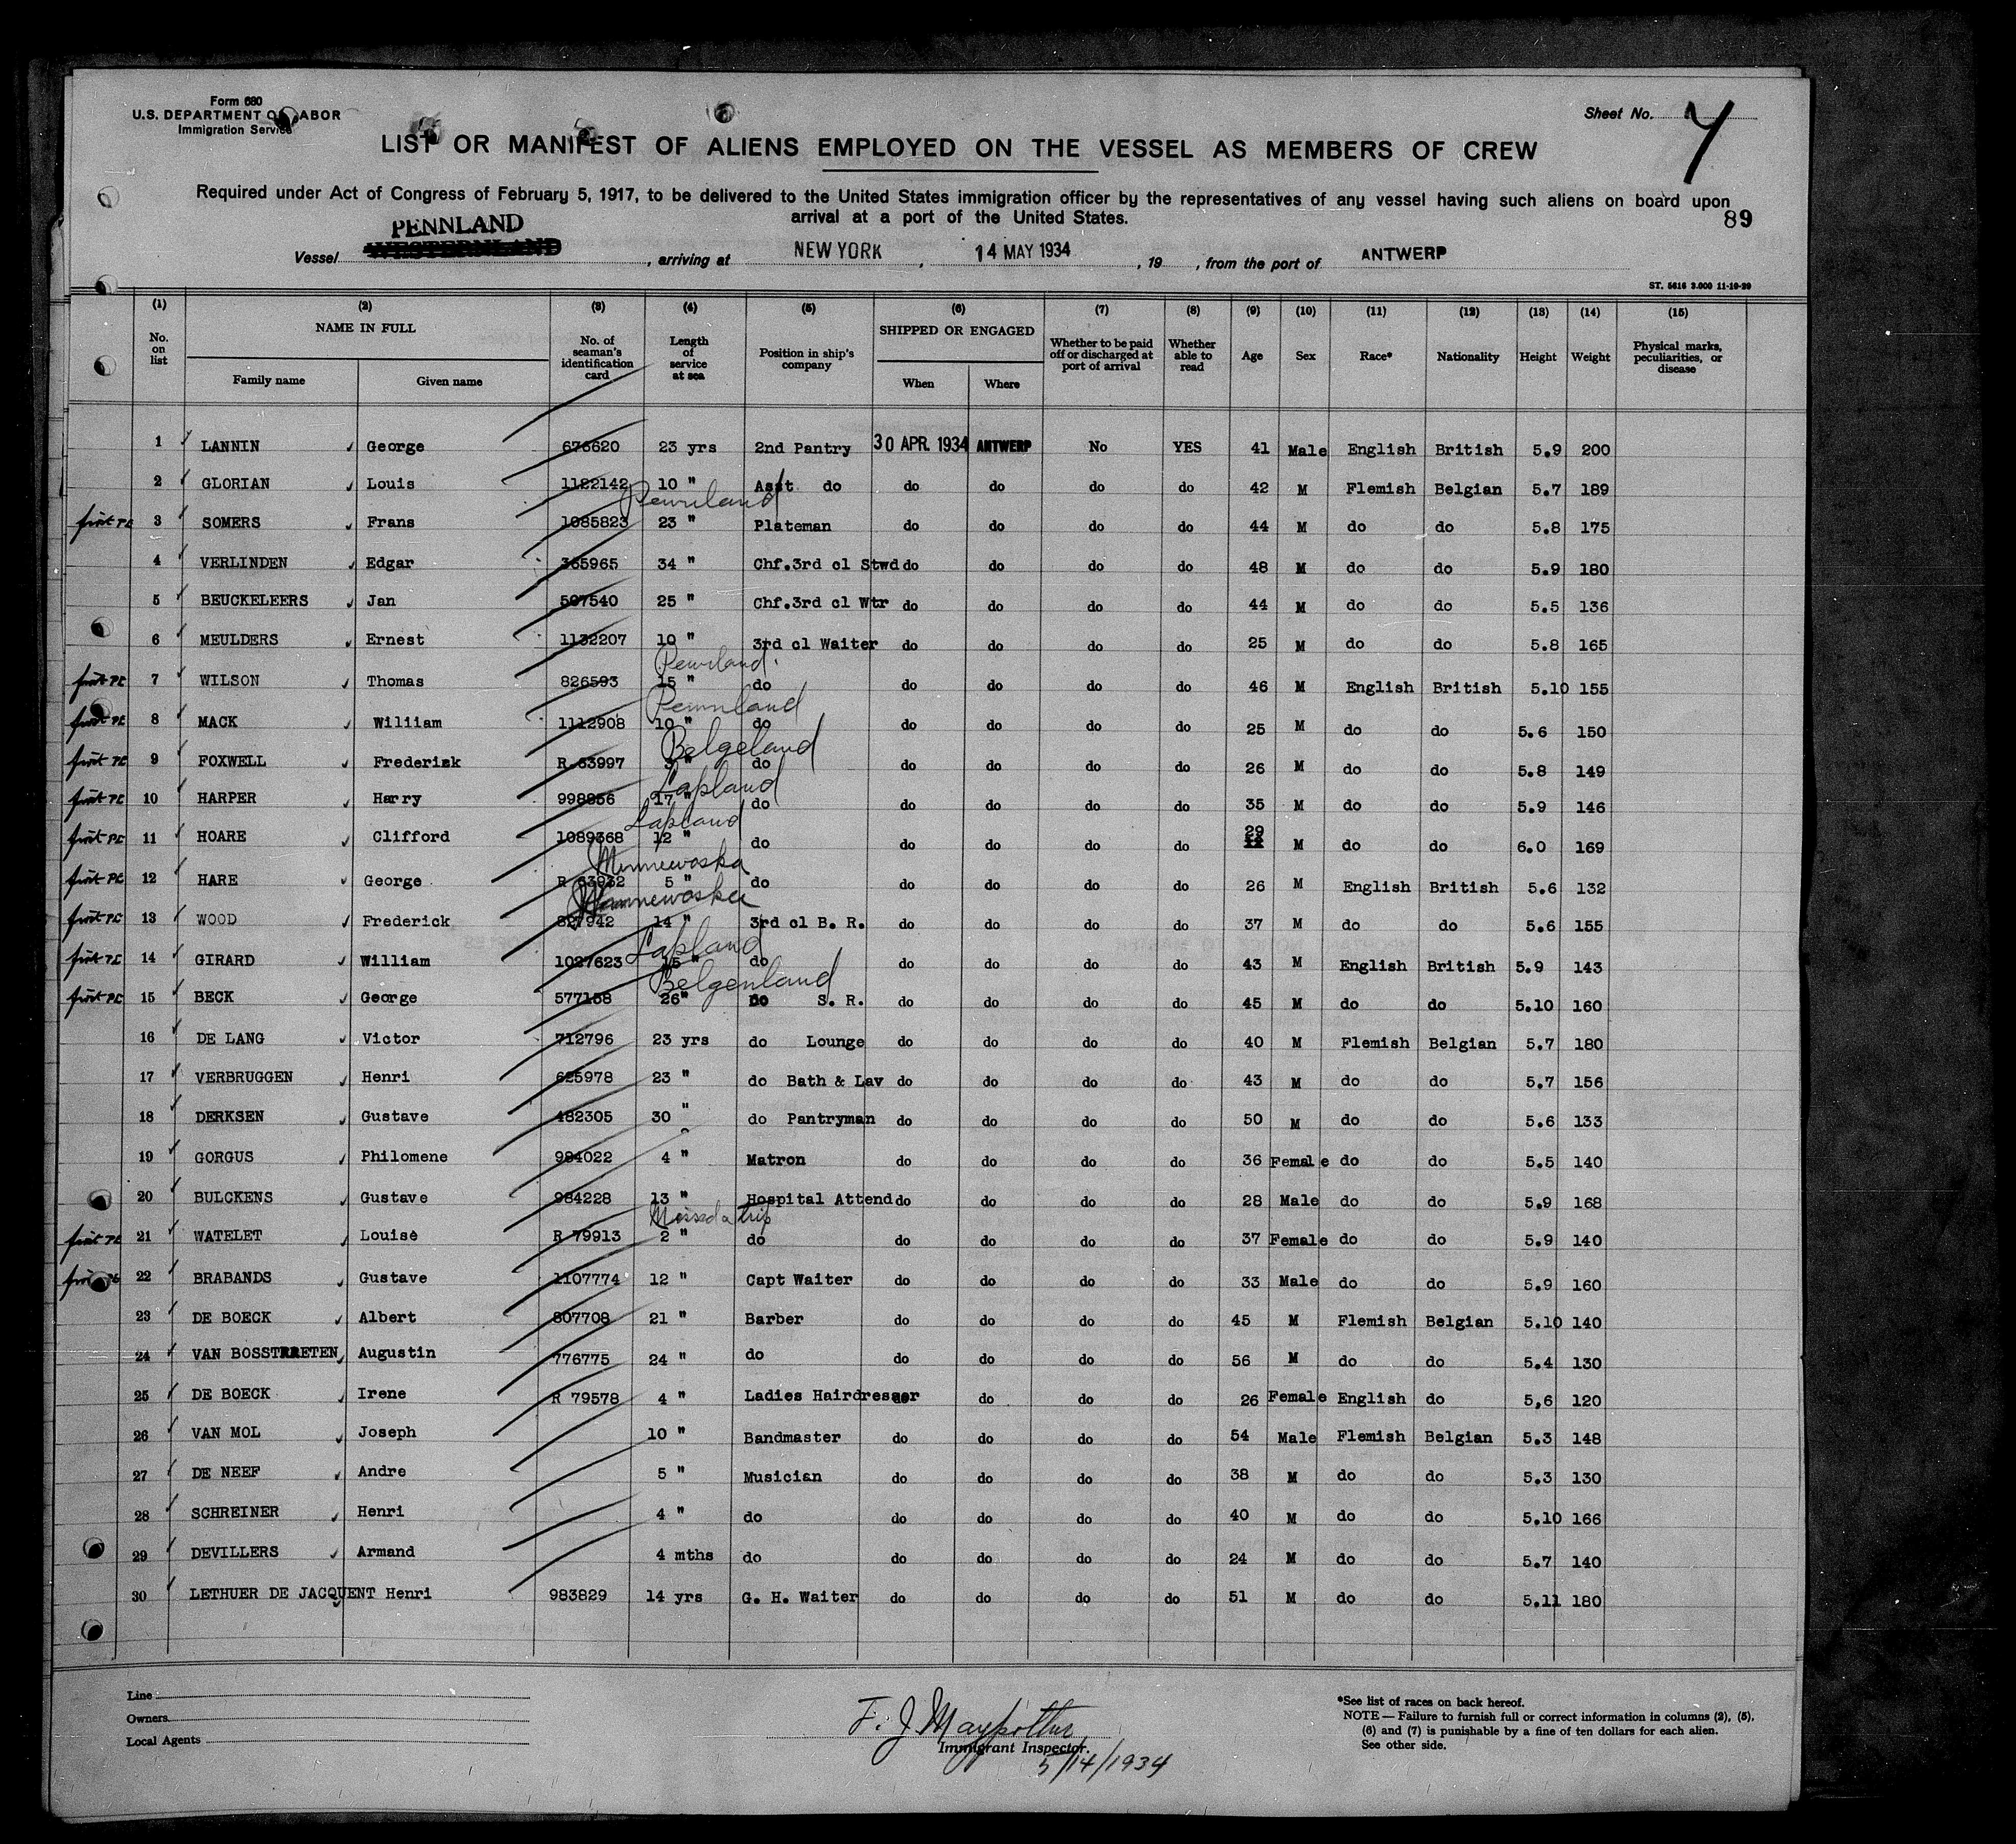 Form 680
U.S. DEPARTMENT OF LABOR
Immigration Service
Sheet No. 7
LIST OR MANIFEST OF ALIENS EMPLOYED ON THE VESSEL AS MEMBERS OF CREW
Required under Act of Congress of February 5, 1917, to be delivered to the United States immigration officer by the representatives of any vessel having such aliens on board upon
arrival at a port of the United States.
89
PENNLAND
Vessel WESTERNLAND, arriving at NEW YORK, 14 MAY 1934, 19 , from the port of ANTWERP
ST. 5616 3.000 11-19-29
(1) (2) (3) (4) (5) (6) (7) (8) (9) (10) (11) (12) (13) (14) (15)
No. on list NAME IN FULL Family name Given name No. of seaman's identification card Length of service at sea Position in ship's company SHIPPED OR ENGAGED When Where Whether to be paid off or discharged at port of arrival Whether able to read Age Sex Race* Nationality Height Weight Physical marks, peculiarities, or disease
1 LANNIN George 676620 23 yrs 2nd Pantry 30 APR. 1934 ANTWERP No YES 41 Male English British 5.9 200
2 GLORIAN Louis 1122142 10 " Asst do do do do do 42 M Flemish Belgian 5.7 189
Pennland
first 3 SOMERS Frans 1085823 23 " Plateman do do do do 44 M do do 5.8 175
4 VERLINDEN Edgar 365965 34 " Chf.3rd cl Stwd do do do do 48 M do do 5.9 180
5 BEUCKELEERS Jan 507540 25 " Chf.3rd cl Wtr do do do do 44 M do do 5.5 136
6 MEULDERS Ernest 1132207 10 " 3rd cl Waiter do do do do 25 M do do 5.8 165
Pennland.
first 7 WILSON Thomas 826593 15 " do do do do do 46 M English British 5.10 155
Pennland
first 8 MACK Wiliiam 1112908 10 " do do do do do 25 M do do 5.6 150
Belgeland
first 9 FOXWELL Frederick R 63997 " do do do do do 26 M do do 5.8 149
Lapland
first 10 HARPER Harry 998856 17 " do do do do do 35 M do do 5.9 146
Lapland
first 11 HOARE Clifford 1089368 12 " do do do do do 29 M do do 6.0 169
Minnewaska
first 12 HARE George R 63932 5 " do do do do do 26 M English British 5.6 132
Minnewaska
first 13 WOOD Frederick 827942 14 " 3rd cl B. R. do do do do 37 M do do 5.6 155
Lapland
first 14 GIRARD William 1027623 15 " do do do do do 43 M English British 5.9 143
Belgenland
first 15 BECK George 577158 26" Do S. R. do do do do 45 M do do 5.10 160
16 DE LANG Victor 712796 23 yrs do Lounge do do do do 40 M Flemish Belgian 5.7 180
17 VERBRUGGEN Henri 625978 23 " do Bath & Lav do do do do 43 M do do 5.7 156
18 DERKSEN Gustave 482305 30 " do Pantryman do do do do 50 M do do 5.6 133
19 GORGUS Philomene 984022 4 " Matron do do do do 36 Female do do 5.5 140
20 BULCKENS Gustave 984228 13 " Hospital Attend do do do do 28 Male do do 5.9 168
Missed a trip
first 21 WATELET Louise R 79913 2 " do do do do do 37 Female do do 5.9 140
22 BRABANDS Gustave 1107774 12 " Capt Waiter do do do do 33 Male do do 5.9 160
23 DE BOECK Albert 807708 21 " Barber do do do do 45 M Flemish Belgian 5.10 140
24 VAN BOSSTRAETEN Augustin 776775 24 " do do do do do 56 M do do 5.4 130
25 DE BOECK Irene R 79578 4 " Ladies Hairdresser do do do do 26 Female English do 5,6 120
26 VAN MOL Joseph 10 " Bandmaster do do do do 54 Male Flemish Belgian 5.3 148
27 DE NEEF Andre 5 " Musician do do do do 38 M do do 5.3 130
28 SCHREINER Henri 4 " do do do do do 40 M do do 5.10 166
29 DEVILLERS Armand 4 mths do do do do do 24 M do do 5.7 140
30 LETHUER DE JACQUENT Henri 983829 14 yrs G. H. Waiter do do do do 51 M do do 5.11 180
Line
Owners
Local Agents
F. J. Maypother
Immigrant Inspector.
5/14/1934
*See list of races on back hereof.
NOTE — Failure to furnish full or correct information in columns (2), (5),
(6) and (7) is punishable by a fine of ten dollars for each alien.
See other side.